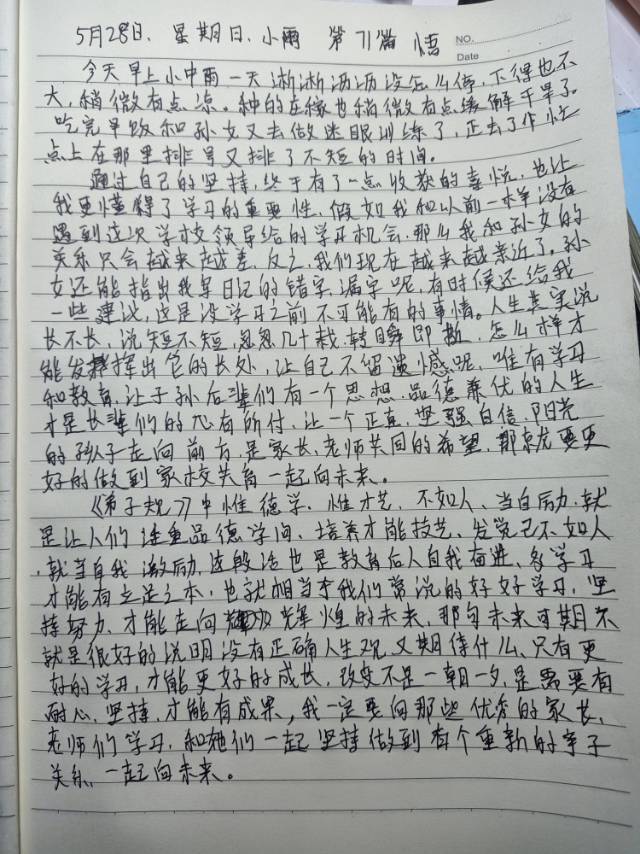 5月28日、星期日、小雨 第71篇 悟
NO.
Date
今天早上小中雨一天淅淅沥沥没怎么停,下得也不
大,稍微有点凉。种的庄稼也稍微有点缓解干旱了。
吃完早饭和孙女又去做迷眼训练了,正去了作忙
点上在那里排号又排了不短的时间。
通过自己的坚持,终于有了一点收获的喜悦,也让
我更懂得了学习的重要性,假如我和以前一样没有
遇到这次学校领导给的学习机会,那么我和孙女的
关系只会越来越差,反之,我们现在越来越亲近了。孙
女还能指出我写日记的错字、漏字呢,有时候还给我
一些建议,这是没学习之前不可能有的事情。人生其实说
长不长,说短不短,忽忽几十栽,转瞬即逝,怎么样才
能发挥出它的长处,让自己不留遗憾呢,唯有学习
和教育,让子孙后辈们有一个思想、品德兼优的人生
才是长辈们的心有所付,让一个正直、坚强自信、阳光
的孩子走向前方,是家长、老师共同的希望,那就要更
好的做到家校共育一起向未来。
《弟子规》中惟德学,惟才艺,不如人,当自励,就
是让人们注重品德学问,培养才能技艺,发觉己不如人
,就当自我激励,这段话也是教育后人自我奋进,多学习
才能有立足之本,也就相当于我们常说的好好学习,坚
持努力,才能走向辉煌的未来,那句未来可期不
就是很好的说明没有正确人生观,又期待什么,只有更
好的学习,才能更好的成长,改变不是一朝一夕,是需要有
耐心,坚持,才能有成果,我一定要向那些优秀的家长、
老师们学习,和她们一起坚持做到有个重新的亲子
关系,一起向未来。